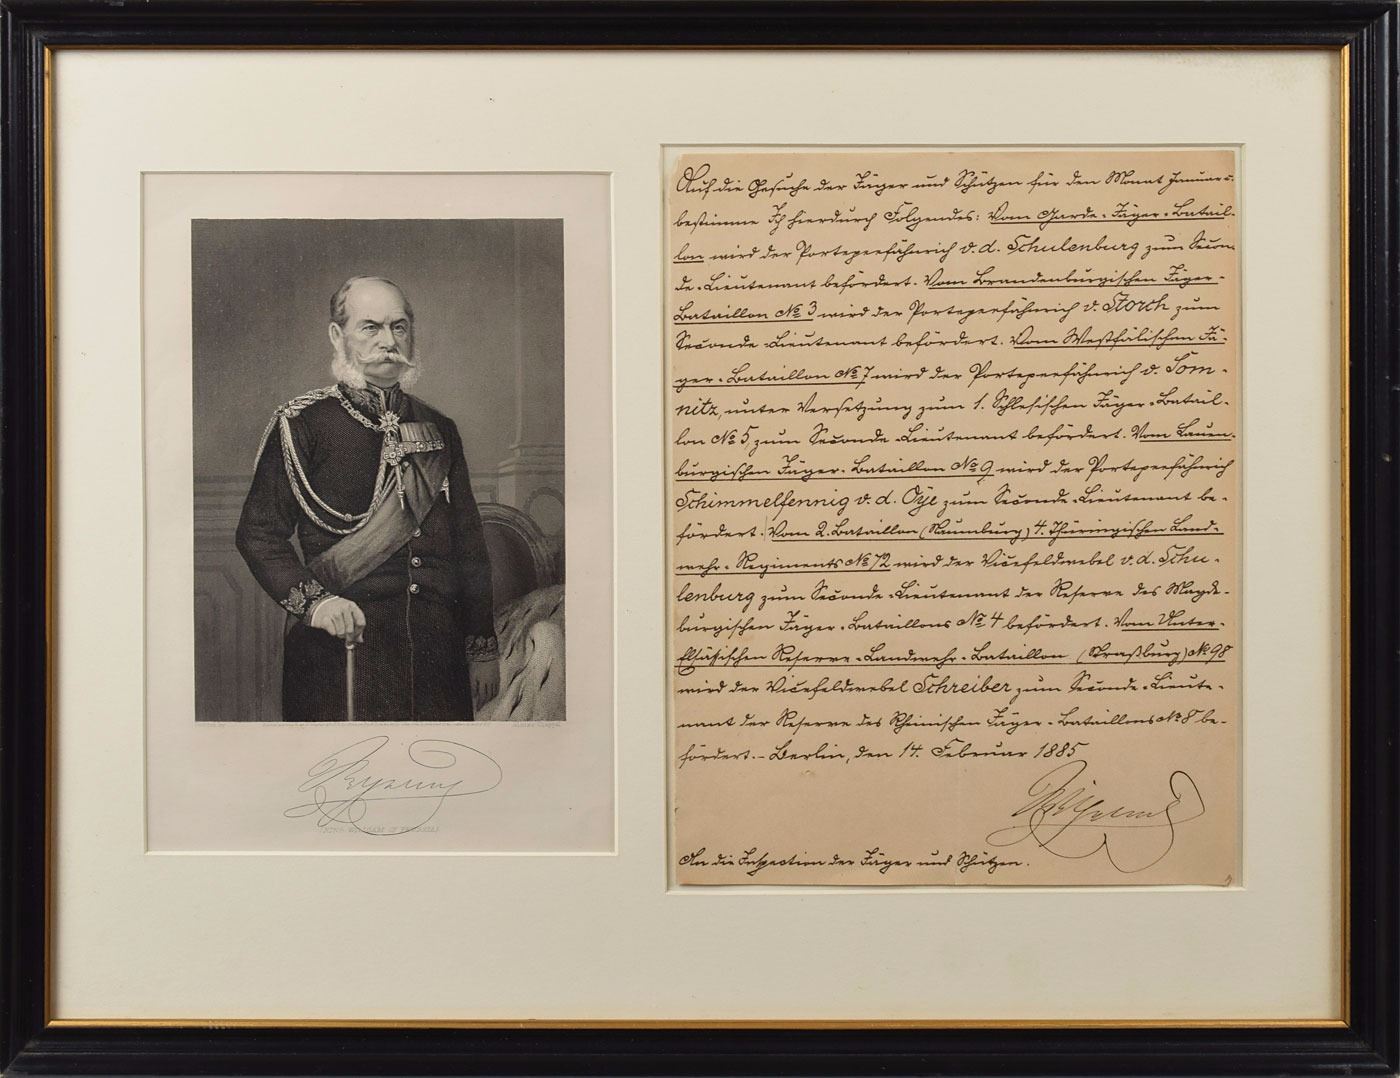 KING WILLIAM OF PRUSSIA
Auf die Gesuche der Jäger und Schützen für den Monat Januar
bestimme Ich hierdurch Folgendes: Vom Garde-Jäger-Batail-
lon wird der Portepeefähnrich v. d. Schulenburg zum Secon-
de-Lieutenant befördert. Vom Brandenburgischen Jäger-
Bataillon No 3 wird der Portepeefähnrich v. Storch zum
Seconde-Lieutenant befördert. Vom Westfälischen Jä-
ger-Bataillon No 7 wird der Portepeefähnrich v. Som-
nitz, unter Versetzung zum 1. Schlesischen Jäger-Batail-
lon No 5, zum Seconde-Lieutenant befördert. Vom Lauen-
burgischen Jäger-Bataillon No 9 wird der Portepeefähnrich
Schimmelfennig v. d. Oye zum Seconde-Lieutenant be-
fördert. Vom 2. Bataillon (Naumburg) 4. Thüringischen Land-
wehr-Regiments No 72 wird der Vicefeldwebel v. d. Schu-
lenburg zum Seconde-Lieutenant der Reserve des Magde-
burgischen Jäger-Bataillons No 4 befördert. Vom Unter-
Elsässischen Reserve-Landwehr-Bataillon (Straßburg) No 98
wird der Vicefeldwebel Schreiber zum Seconde-Lieute-
nant der Reserve des Rheinischen Jäger-Bataillons No 8 be-
fördert.- Berlin, den 14. Februar 1885
Wilhelm
An die Inspection der Jäger und Schützen.